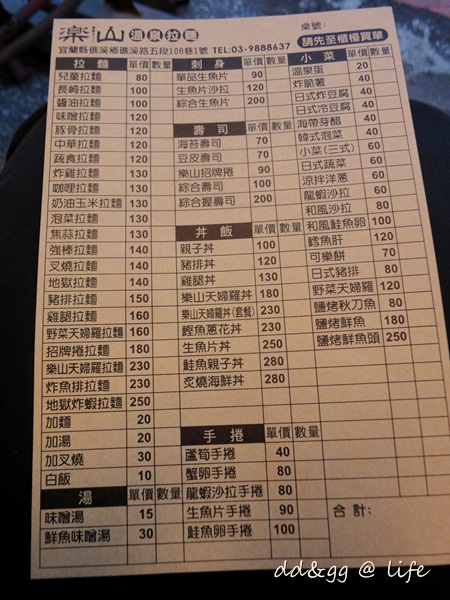 楽山 溫泉拉麵
桌號:
宜蘭縣礁溪鄉礁溪路五段108巷1號 TEL:03-9888637
請先至櫃檯買單
拉麵 單價 數量
兒童拉麵 80
長崎拉麵 100
醬油拉麵 100
味噌拉麵 120
豚骨拉麵 120
中華拉麵 120
蔬食拉麵 120
炸雞拉麵 130
咖哩拉麵 130
奶油玉米拉麵 130
泡菜拉麵 130
焦蒜拉麵 130
強棒拉麵 140
叉燒拉麵 140
地獄拉麵 140
豬排拉麵 150
雞腿拉麵 160
野菜天婦羅拉麵 160
招牌捲拉麵 180
樂山天婦羅拉麵 230
炸魚排拉麵 230
地獄炸蝦拉麵 250
加麵 20
加湯 20
加叉燒 30
白飯 10
湯 單價 數量
味噌湯 15
鮮魚味噌湯 30
刺身 單價 數量
單品生魚片 90
生魚片沙拉 120
綜合生魚片 200
壽司 單價 數量
海苔壽司 70
豆皮壽司 70
樂山招牌捲 90
綜合壽司 100
綜合握壽司 200
丼飯 單價 數量
親子丼 100
豬排丼 120
雞腿丼 130
樂山天婦羅丼 180
樂山天婦羅丼(套餐) 230
鰹魚蔥花丼 230
生魚片丼 250
鮭魚親子丼 280
炙燒海鮮丼 280
手捲 單價 數量
蘆筍手捲 40
蟹卵手捲 80
龍蝦沙拉手捲 80
生魚片手捲 90
鮭魚卵手捲 100
小菜 單價 數量
溫泉蛋 20
炸脆薯 40
日式炸豆腐 40
日式冷豆腐 40
海帶芽醋 40
韓式泡菜 40
小菜(三式) 60
日式蔬菜 60
涼拌洋蔥 60
龍蝦沙拉 60
和風沙拉 80
和風鮭魚卵 100
鱈魚肝 120
可樂餅 70
日式豬排 80
野菜天婦羅 120
鹽烤秋刀魚 80
鹽烤鮮魚 180
鹽烤鮮魚頭 250
合計:
dd&gg @ life